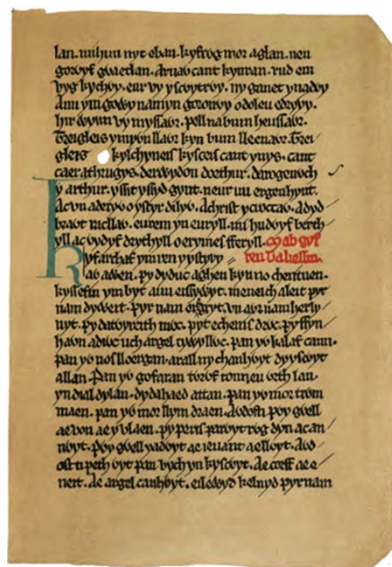 lan. mi hun nyt eban. kyfrỽg mor aglan. neu
gorỽyf gỽaetlan. Arnaỽ cant kynran. rud em
vyg kychỽy. eur vy yscỽytrỽy. ny ganet yn adỽy
Auu ym goỽy namyn goronỽy o doleu edryỽy.
hir ỽynn vy myssaỽr. pell na bum heussaỽr.
Treigleis y myỽn llaỽr kyn bum lleenaỽr. Trei
gleis kylchyneis kysceis cant ynys. cant
caer athrugys. derỽydon doethur. darogenỽch
y arthur. yssit yssyd gynt. neur mi ergenhynt.
Ac vn aderyỽ o ystyr dilyỽ. A christ y croccaỽ. A dyd
braỽt racllaỽ. eurem yn euryll. mi hudỽyf berth
yll ac ỽydyf drythyll o erymes fferyll. Mabgyf
reu Taliessin.
Kyfarchaf ym ren y ystyry
aỽ aỽen. py dyduc aghen kyn no cherituen.
kyssefin ym byt auu eissyỽyt. meneich aleit pyr
nam dyỽeit. pyr nam eisgyt. vn aỽr nam herly
nyt. py datỽyreith mỽc. pyt echenis drỽc. py ffyn
haỽn adiỽc uch argel tyỽyllỽc. pan yỽ kalaf cann.
pan yỽ nos lloergan. arall ny chanhỽyt dy yscỽyt
allan. Pan yỽ gofaran tỽrỽf tonneu ỽrth lan.
yn dial dylan. dydahaed attan. pan yỽ mor trỽm
maen. pan yỽ mor llym draen. Aỽdosti pỽy gỽell
ae von ae y vlaen. py peris parỽyt rỽg dyn ac an
nỽyt. pỽy gỽell y adỽyt ae ieuanc ae llỽyt. Aỽd
osti peth ỽyt pan vych yn kyscỽyt. Ae corff ae e
neit. Ae argel canhỽyt. eileỽyd keluyd pyr nam